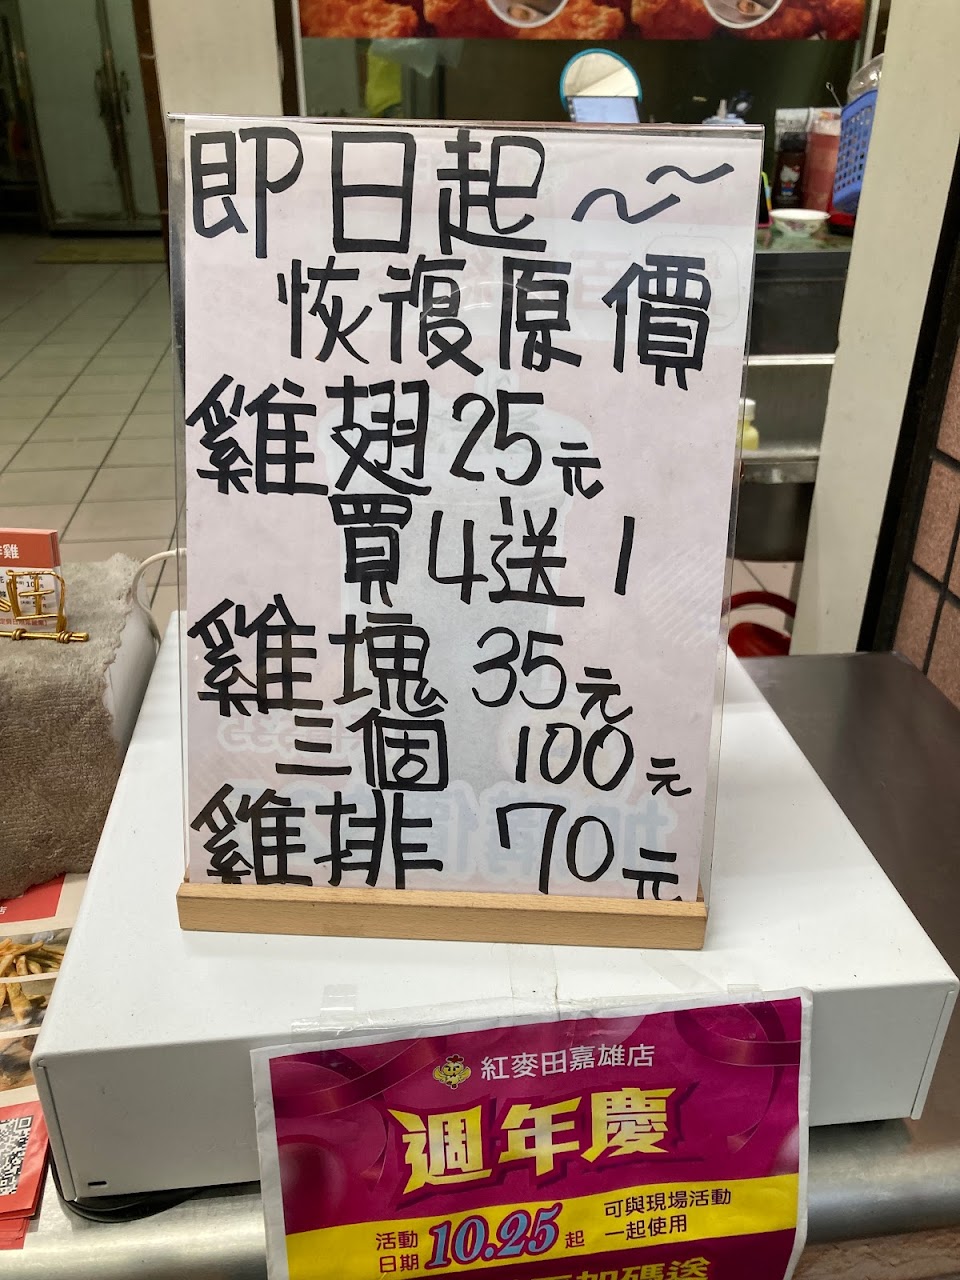 即日起~~
恢復原價
雞翅25元
買4送1
雞塊 35元
三個 100元
雞排 70元
紅麥田嘉雄店
週年慶
活動日期 10.25 起
可與現場活動
一起使用
加碼送